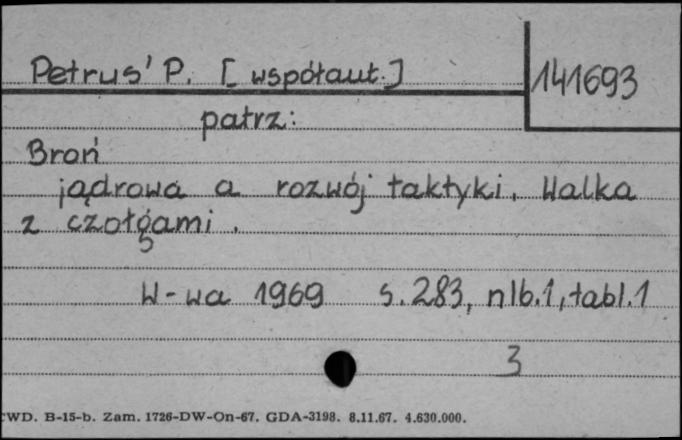 Petrus' P. [współaut.]
141693
patrz:
Broń
jądrowa a rozwój taktyki. Walka
z czołgami.
W-wa 1969 s. 283, nlb. 1, tabl. 1
3
CWD. B-15-b. Zam. 1726-DW-On-67. GDA-3198. 8.11.67. 4.630.000.